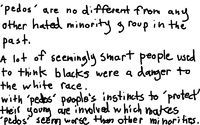 'pedos' are no different from any
other hated minority group in the
past.
A lot of seemingly smart people used
to think blacks were a danger to
the white race.
with 'pedos' people's instincts to 'protect'
their young are involved which makes
'pedos' seem worse than other minorities.